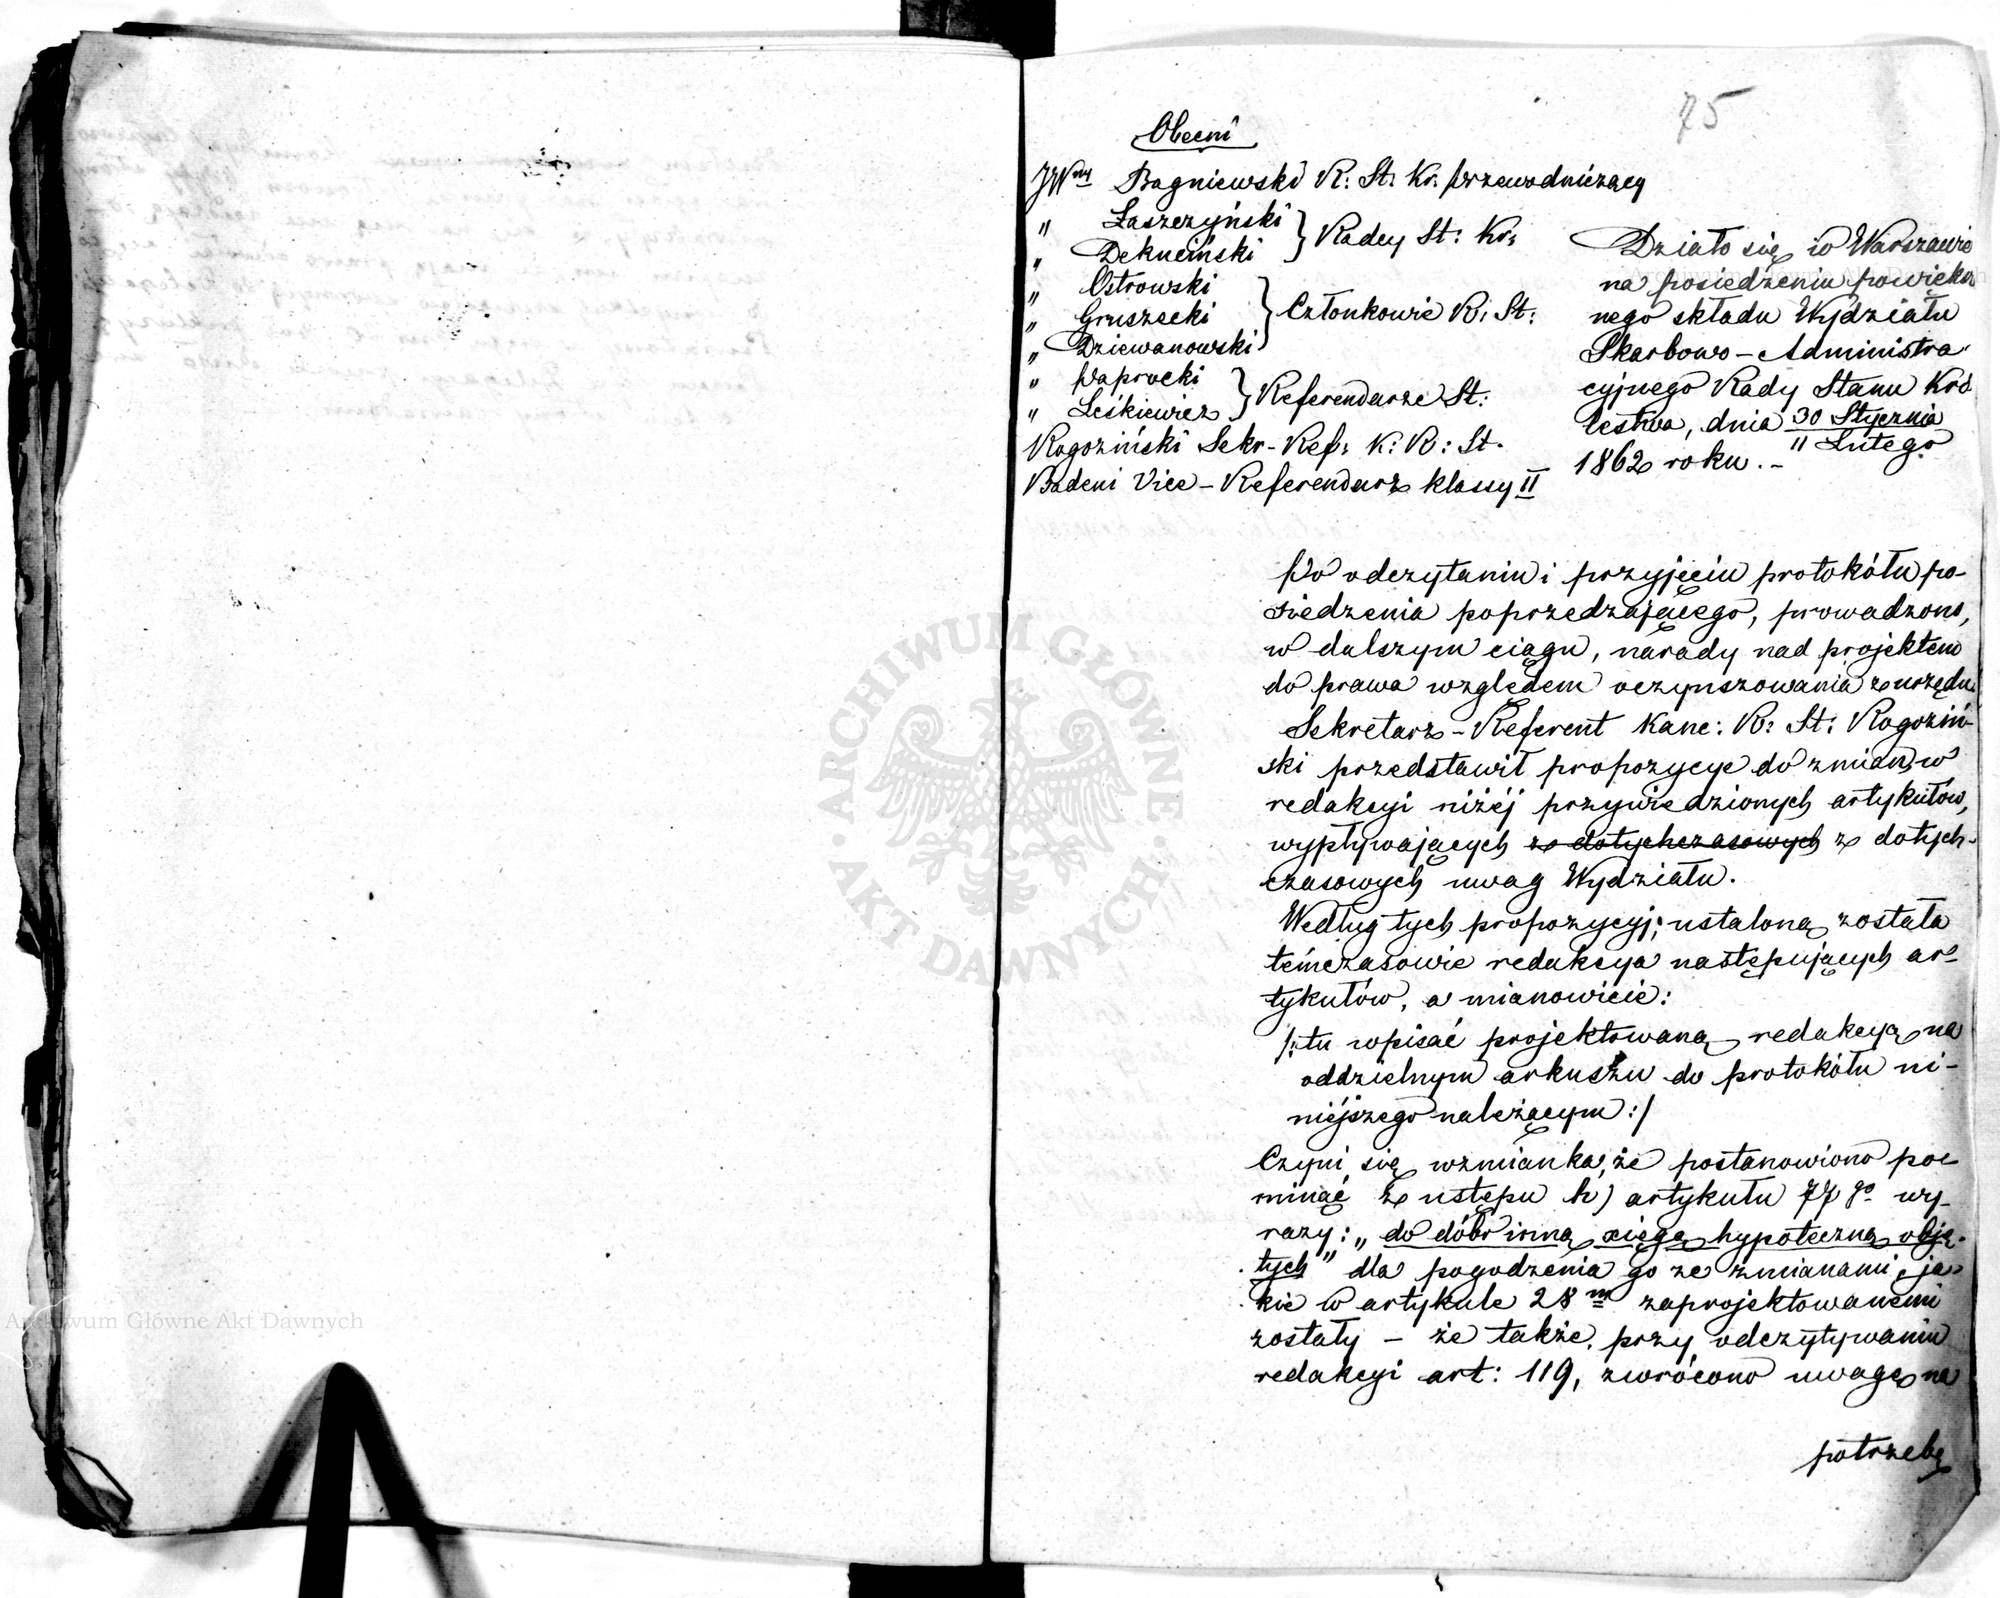 75
Obecni
JWny Bagniewski R: St: Kr: przewodniczący
" Łaszczyński } Radcy St: Kr:
" Dekuciński
" Ostrowski
" Gruszecki } Członkowie R: St:
" Dziewanowski
" Paprocki } Referendarze St:
" Leśkiewicz
Rogoziński Sekr-Ref: K: R: St.
Badeni Vice-Referendarz klassy II
Działo się w Warszawie
na posiedzeniu powięk
nego składu Wydziału
Skarbowo-Administra
cyjnego Rady Stanu Kró
lestwa, dnia 30 Stycznia
11 Lutego
1862 roku.-
Po odczytaniu i przyjęciu protokółu po-
siedzenia poprzedzającego, prowadzono,
w dalszym ciągu, narady nad projektem
do prawa względem oczynszowania z urzędu.
Sekretarz-Referent Kanc: R: St: Rogoziń-
ski przedstawił propozycye do zmian w
redakcyi niżéj przywiedzionych artykułów,
wypływających z dotychczasowych z dotych-
czasowych uwag Wydziału.
Według tych propozycyj, ustaloną została
témczasowie redakcya następujących ar-
tykułów, a mianowicie:
/:tu wpisać projektowaną redakcyą na
oddzielnym arkuszu do protokółu ni-
niéjszego należącym:/
Czyni się wzmianka, że postanowiono po
minąć z ustępu h) artykułu 77go wy-
razy: „do dóbr inną xięgą hypoteczną obję-
tych" dla pogodzenia go ze zmianami, ja-
kie w artykule 28m zaprojektowanemi
zostały - że także, przy odczytywaniu
redakcyi art: 119, zwrócono uwagę na
potrzebę
ARCHIWUM GŁÓWNE
AKT DAWNYCH
Archiwum Główne Akt Dawnych
Archiwum Główne Akt Dawnych